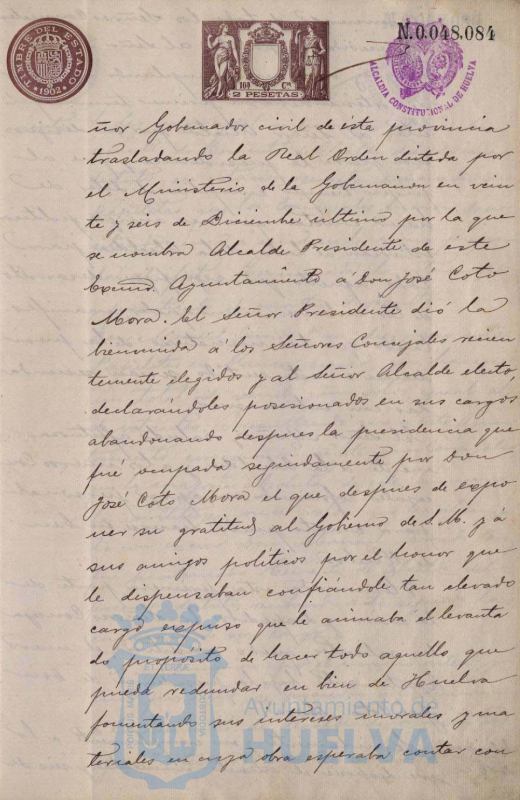 TIMBRE DEL ESTADO
1902
100 Cts
2 PESETAS
N.0.048.084
ALCALDIA CONSTITUCIONAL DE HUELVA
ñor Gobernador civil de esta provincia
trasladando la Real Orden dictada por
el Ministerio de la Gobernacion en vein
te y seis de Diciembre último por la que
se nombra Alcalde Presidente de este
Excmo. Ayuntamiento á Don José Coto
Mora. El Señor Presidente dió la
bienvenida á los Señores Concejales recien
temente elegidos y al Señor Alcalde electo,
declarándoles posesionados en sus cargos
abandonando despues la presidencia que
fué ocupada seguidamente por Don
José Coto Mora el que despues de expo
ner su gratitud al Gobierno de S. M. y á
sus amigos politicos por el honor que
le dispensaban confiándole tan elevado
cargo expuso que le animaba el levanta
do propósito de hacer todo aquello que
pueda redundar en bien de Huelva
fomentando sus intereses morales y ma
teriales en cuya obra esperaba contar con
Ayuntamiento de
HUELVA